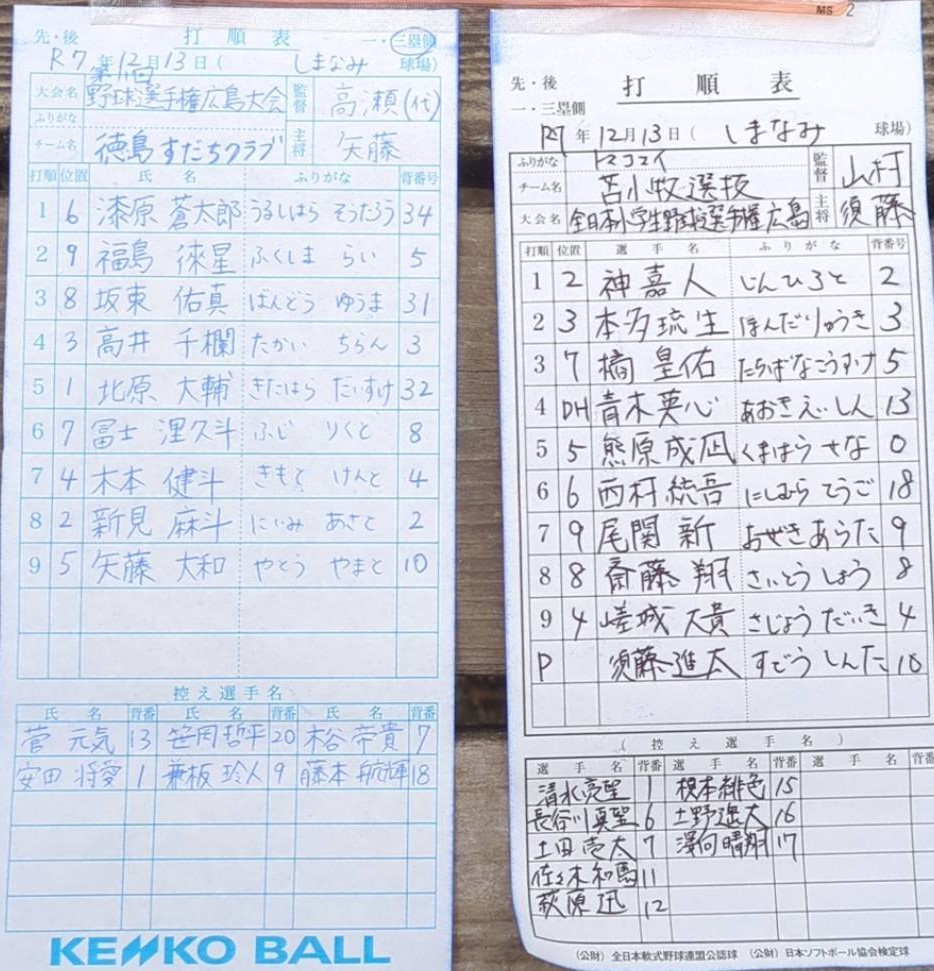 MS 2
先・後 打順表 一・三塁側
R7年12月13日( しまなみ 球場)
大会名 第1回 野球選手権広島大会 監督 高瀬(代)
ふりがな
チーム名 徳島すだちクラブ 主将 矢藤
打順 位置 氏名 ふりがな 背番号
1 6 漆原 蒼太郎 うるしはら そうたろう 34
2 9 福島 徠星 ふくしま らい 5
3 8 坂東 佑真 ばんどう ゆうま 31
4 3 高井 千欄 たかい ちらん 3
5 1 北原 大輔 きたはら だいすけ 32
6 7 冨士 浬久斗 ふじ りくと 8
7 4 木本 健斗 きもと けんと 4
8 2 新見 麻斗 にいみ あさと 2
9 5 矢藤 大和 やとう やまと 10
控え選手名
氏名 背番 氏名 背番 氏名 背番
菅 元気 13 笹岡哲平 20 木谷帝貴 7
安田 将愛 1 兼板 玲人 9 藤本 航輝 18
KENKO BALL
先・後 打順表
一・三塁側
R7年12月13日( しまなみ 球場)
ふりがな トマコマイ 監督 山村
チーム名 苫小牧選抜
大会名 全日本小学生野球選手権広島 主将 須藤
打順 位置 選手名 ふりがな 背番号
1 2 神嘉人 じんひろと 2
2 3 本多琉生 ほんだりゅうき 3
3 7 橘皇佑 たちばなこうすけ 5
4 DH 青木英心 あおきえいしん 13
5 5 熊原成凪 くまはら せな 0
6 6 西村統吾 にしむら とうご 18
7 9 尾関新 おぜきあらた 9
8 8 斎藤翔 さいとう しょう 8
9 4 嵯城大貴 さじょう だいき 4
P 須藤進太 すどう しんた 10
(控え選手名)
選手名 背番 選手名 背番 選手名 背番
清水亮聖 1 根本緋色 15
長谷川真聖 6 土野遥大 16
土田壱太 7 澤向晴翔 17
佐々木和馬 11
荻原迅 12
(公財)全日本軟式野球連盟公認球 (公財)日本ソフトボール協会検定球